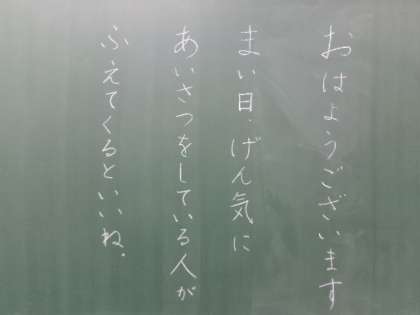 おはようございます
まい日、げん気に
あいさつをしている人が
ふえてくるといいね。